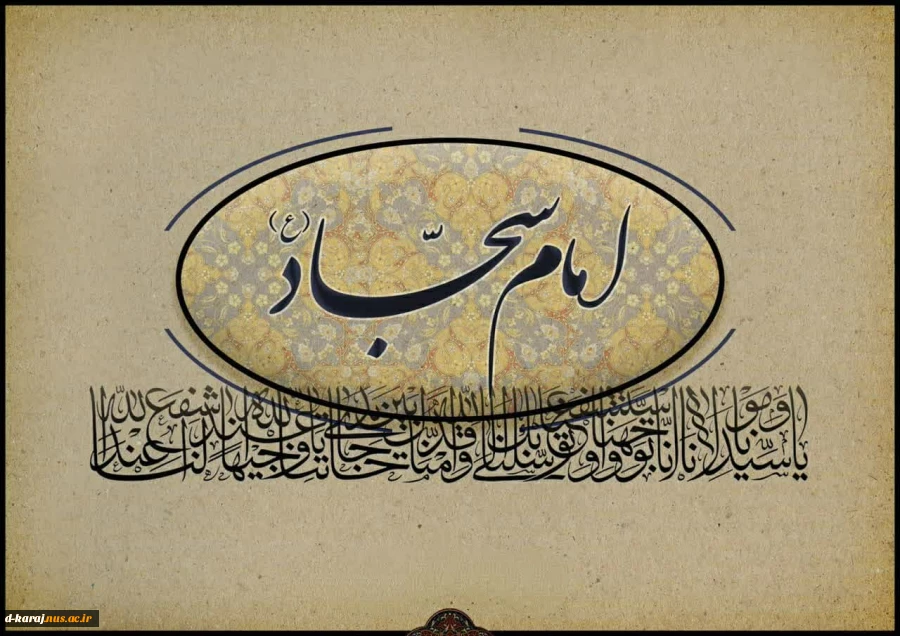 امام سجّاد (ع)
یا سیدنا و مولانا انا توجهنا و استشفعنا و توسلنا بک الی الله و قدمناک بین یدی حاجاتنا یا وجیها عند الله اشفع لنا عند الله
d-karaj.nus.ac.ir